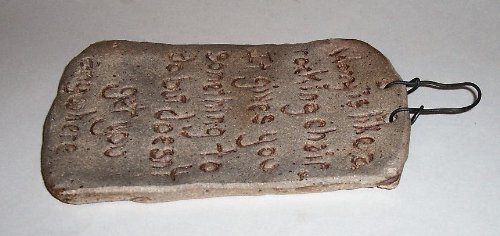 Worry is like a
rocking chair.
It gives you
something to
do but doesn't
get you
anywhere